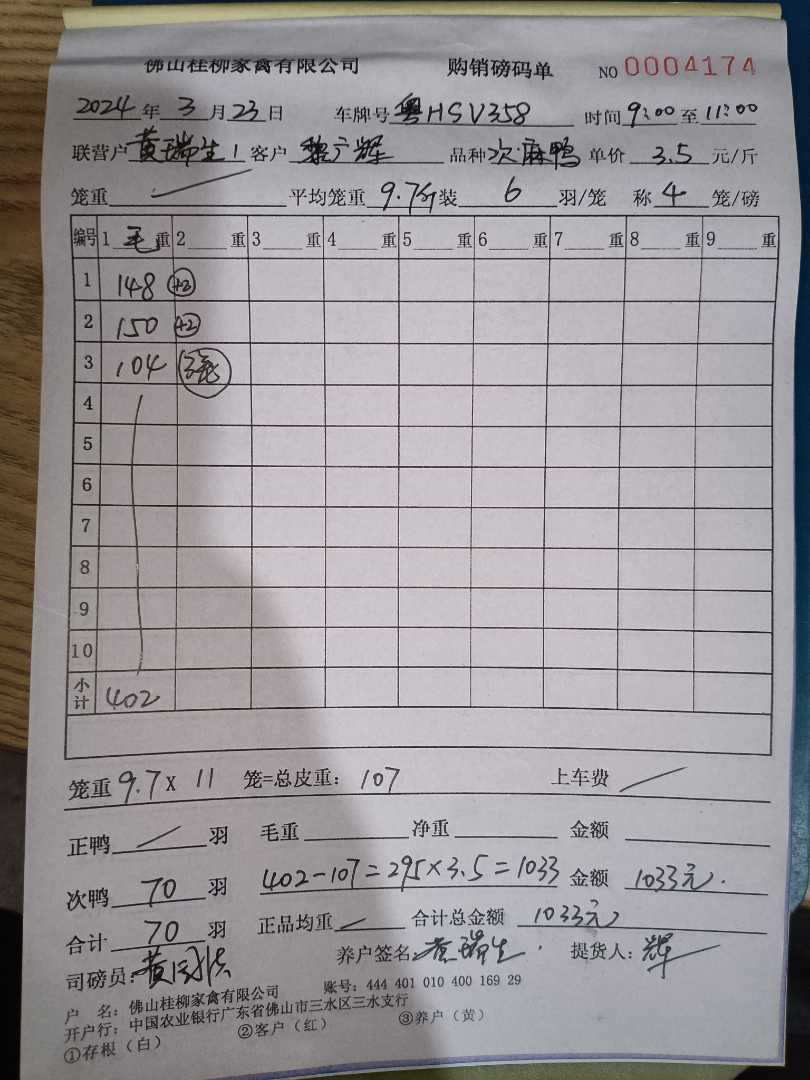 佛山桂柳家禽有限公司 购销磅码单 NO 0004174
2024年3月23日 车牌号 粤HSV358 时间 9:00 至 11:00
联营户 黄瑞生1 客户 黎广辉 品种 次麻鸭 单价 3.5 元/斤
笼重 平均笼重 9.7斤 装 6 羽/笼 称 4 笼/磅
编号 1 毛 重 2 重 3 重 4 重 5 重 6 重 7 重 8 重 9 重
1 148 +2
2 150 +2
3 104 3笼
4
5
6
7
8
9
10
小计 402
笼重 9.7 X 11 笼=总皮重: 107 上车费
正鸭 羽 毛重 净重 金额
次鸭 70 羽 402-107=295×3.5=1033 金额 1033元.
合计 70 羽 正品均重 合计总金额 1033元
司磅员: 黄 养户签名 黄瑞生. 提货人: 辉
户 名: 佛山桂柳家禽有限公司 账号: 444 401 010 400 169 29
开户行: 中国农业银行广东省佛山市三水区三水支行
①存根(白) ②客户(红) ③养户(黄)